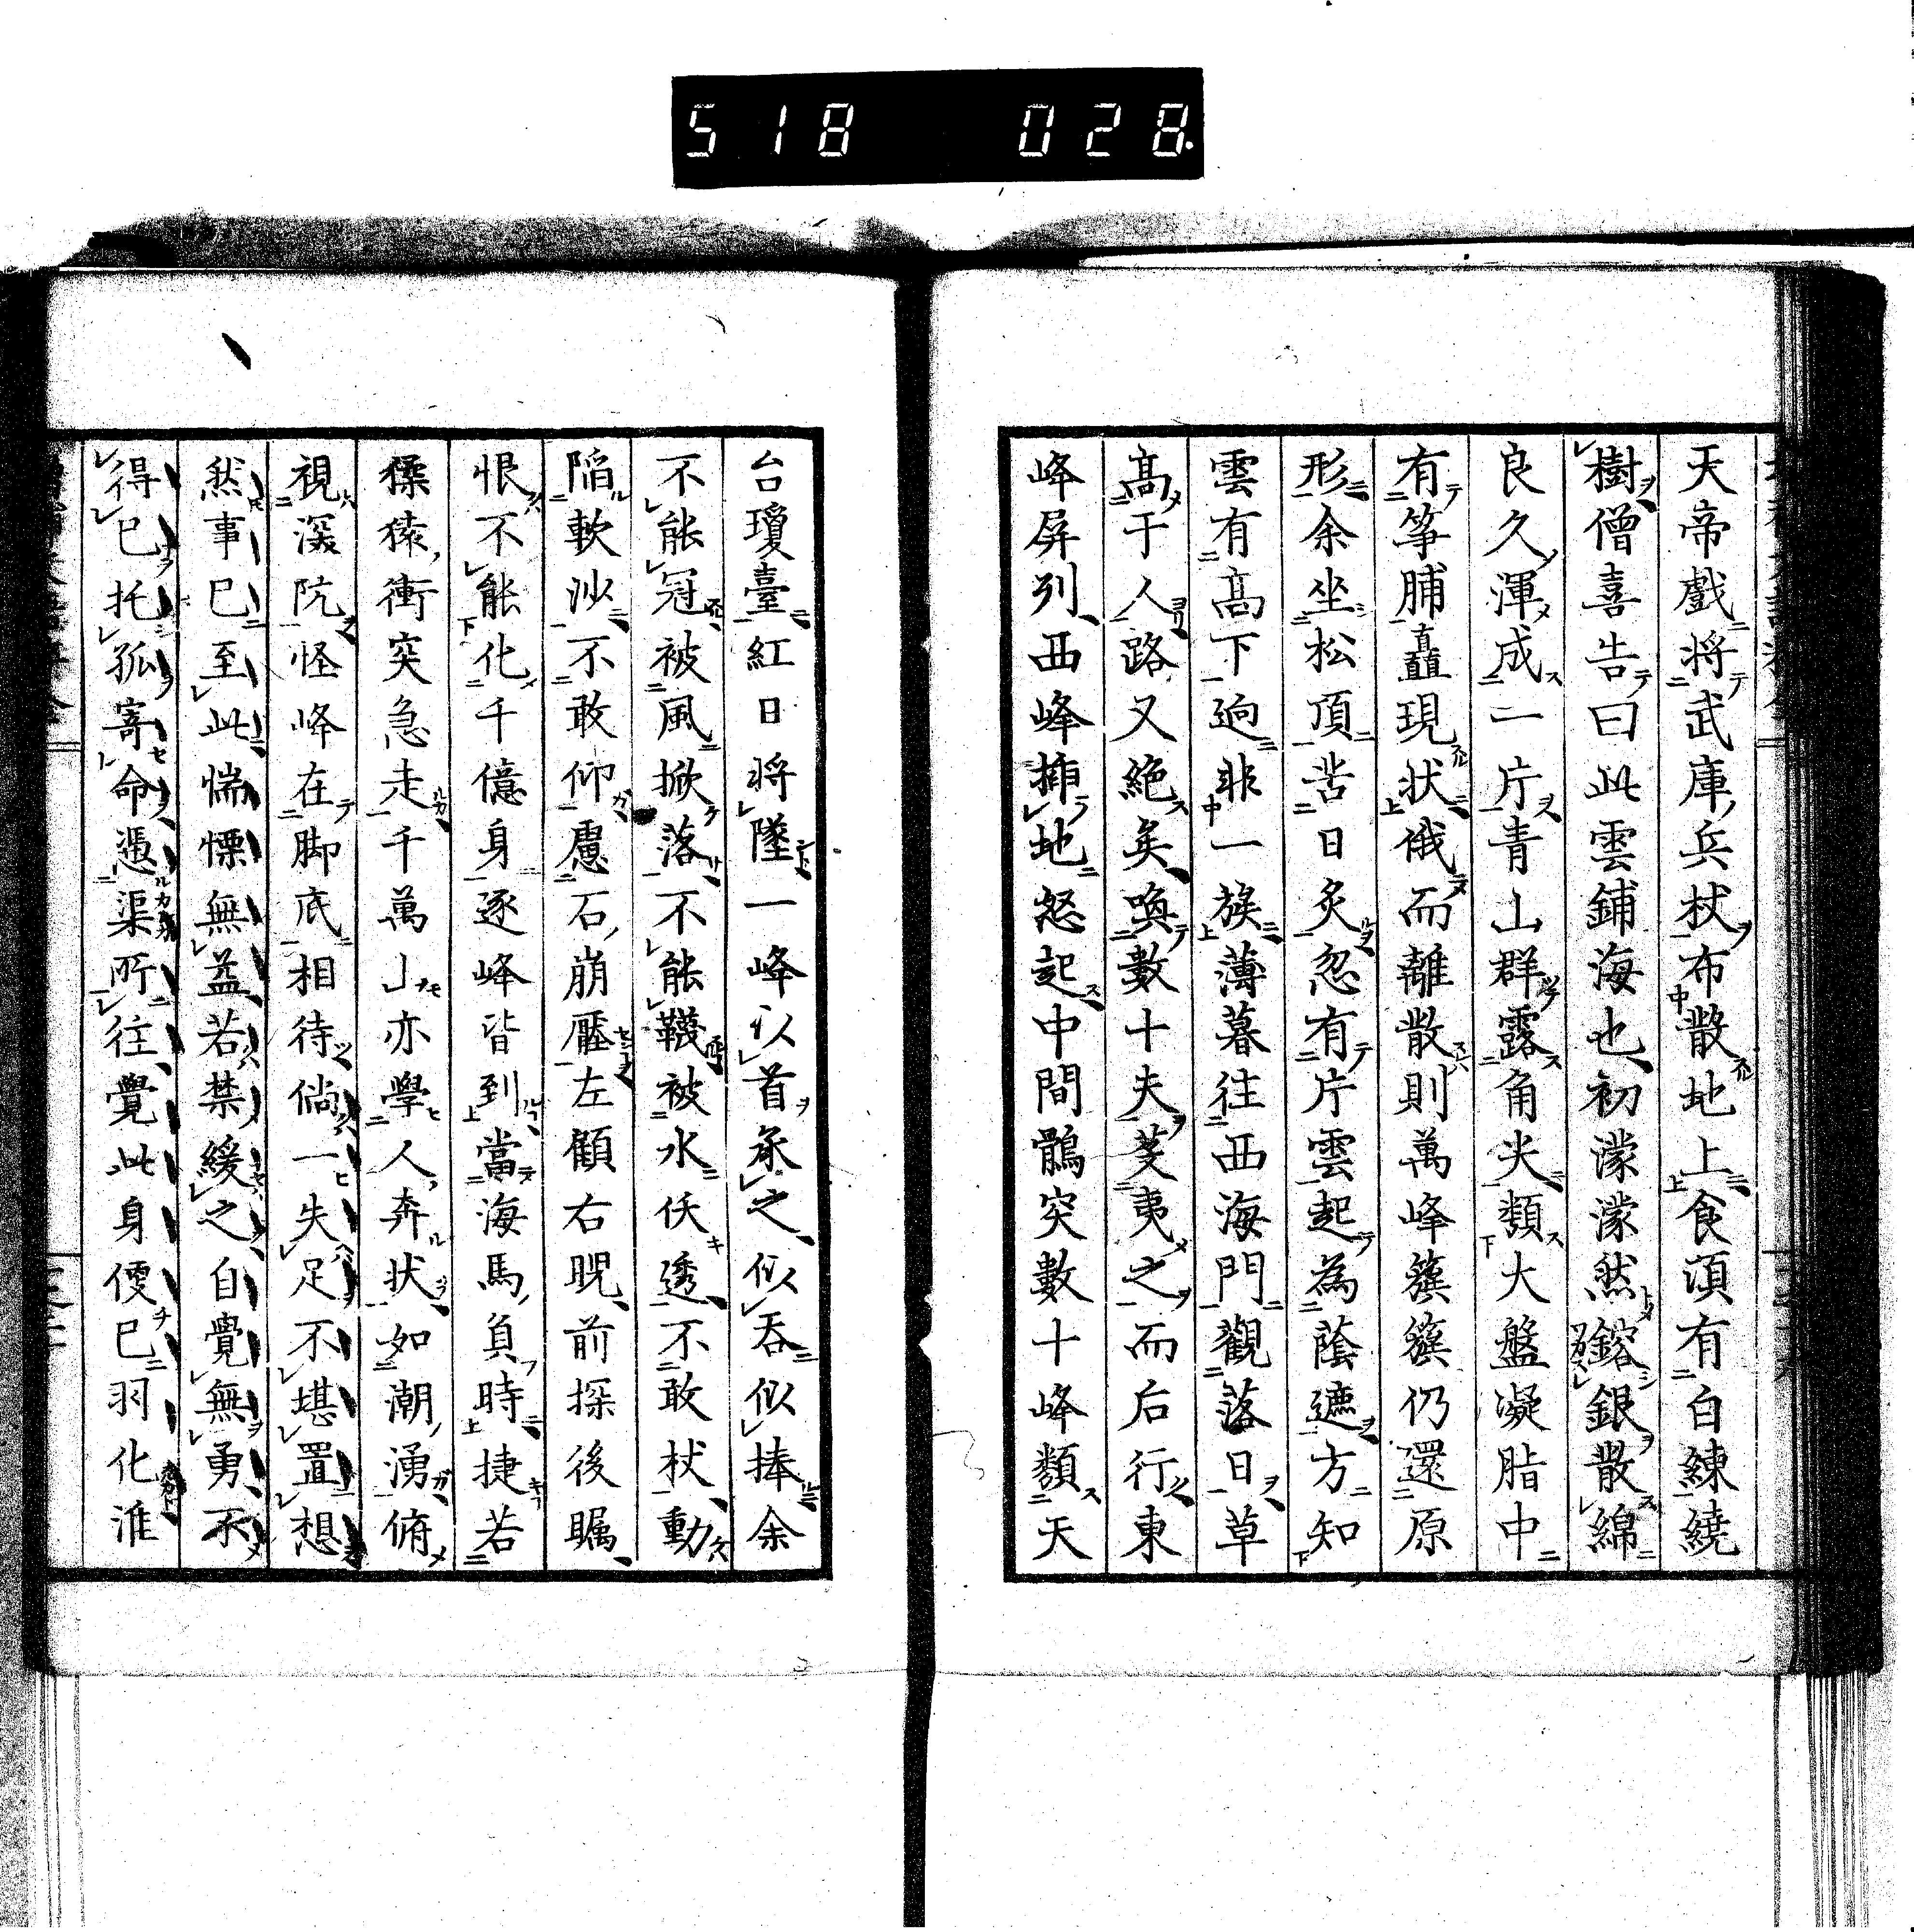 518 028
天帝戲將武庫兵杖布散地上食湏有白練繞
樹僧喜告曰此雲鋪海也初濛濛然鎔銀散綿
良久渾成一片青山群露角尖類大盤凝脂中
有筝脯矗現狀俄而離散則萬峰簇簇仍還原
形余坐松頂苦日炙忽有片雲起為蔭遮方知
雲有高下迥非一族薄暮往西海門觀落日草
髙于人路又絶矣喚數十夫芟夷之而后行東
峰屏列西峰揷地怒起中間鶻突數十峰類天
台瓊臺紅日将墜一峰以首承之似吞似捧余
不能冠被風掀落不能韈被水沃透不敢杖動
陷軟沙不敢仰慮石崩壓左顧右睨前探後矚
恨不能化千億身逐峰皆到當海馬負時捷若
猱猿衝突急走千萬山亦學人奔狀如潮湧俯
視深阬怪峰在脚底相待倘一失足不堪置想
然事巳至此惴慄無益若禁緩之自覺無勇不
得巳托孤寄命憑渠所往覺此身便巳羽化淮